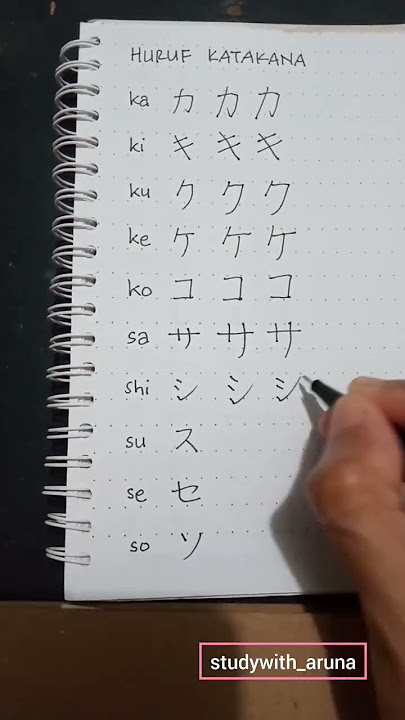 HURUF KATAKANA
ka カ カ カ
ki キ キ キ
ku ク ク ク
ke ケ ケ ケ
ko コ コ コ
sa サ サ サ
shi シ シ シ
su ス
se セ
so ソ
studywith_aruna